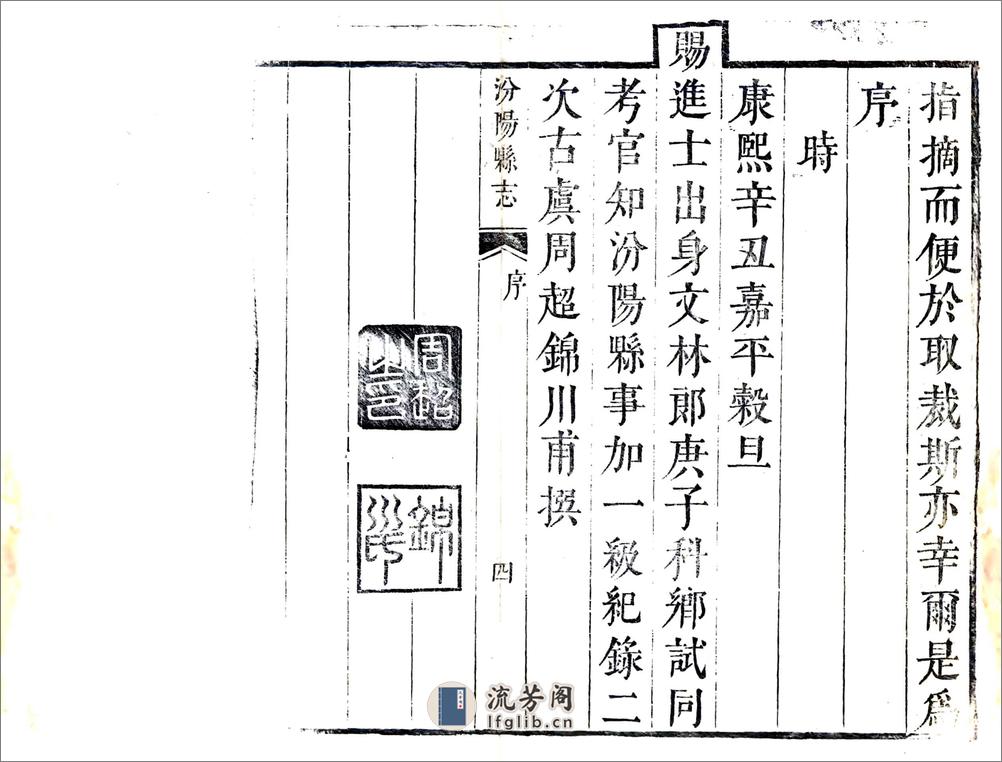 指摘而便於取裁斯亦幸爾是爲
序
時
康熙辛丑嘉平穀旦
賜進士出身文林郎庚子科鄉試同
考官知汾陽縣事加一級紀錄二
次古虞周超錦川甫撰
汾陽縣志
序
四
周超之印
錦川氏
流芳阁
lfglib.cn